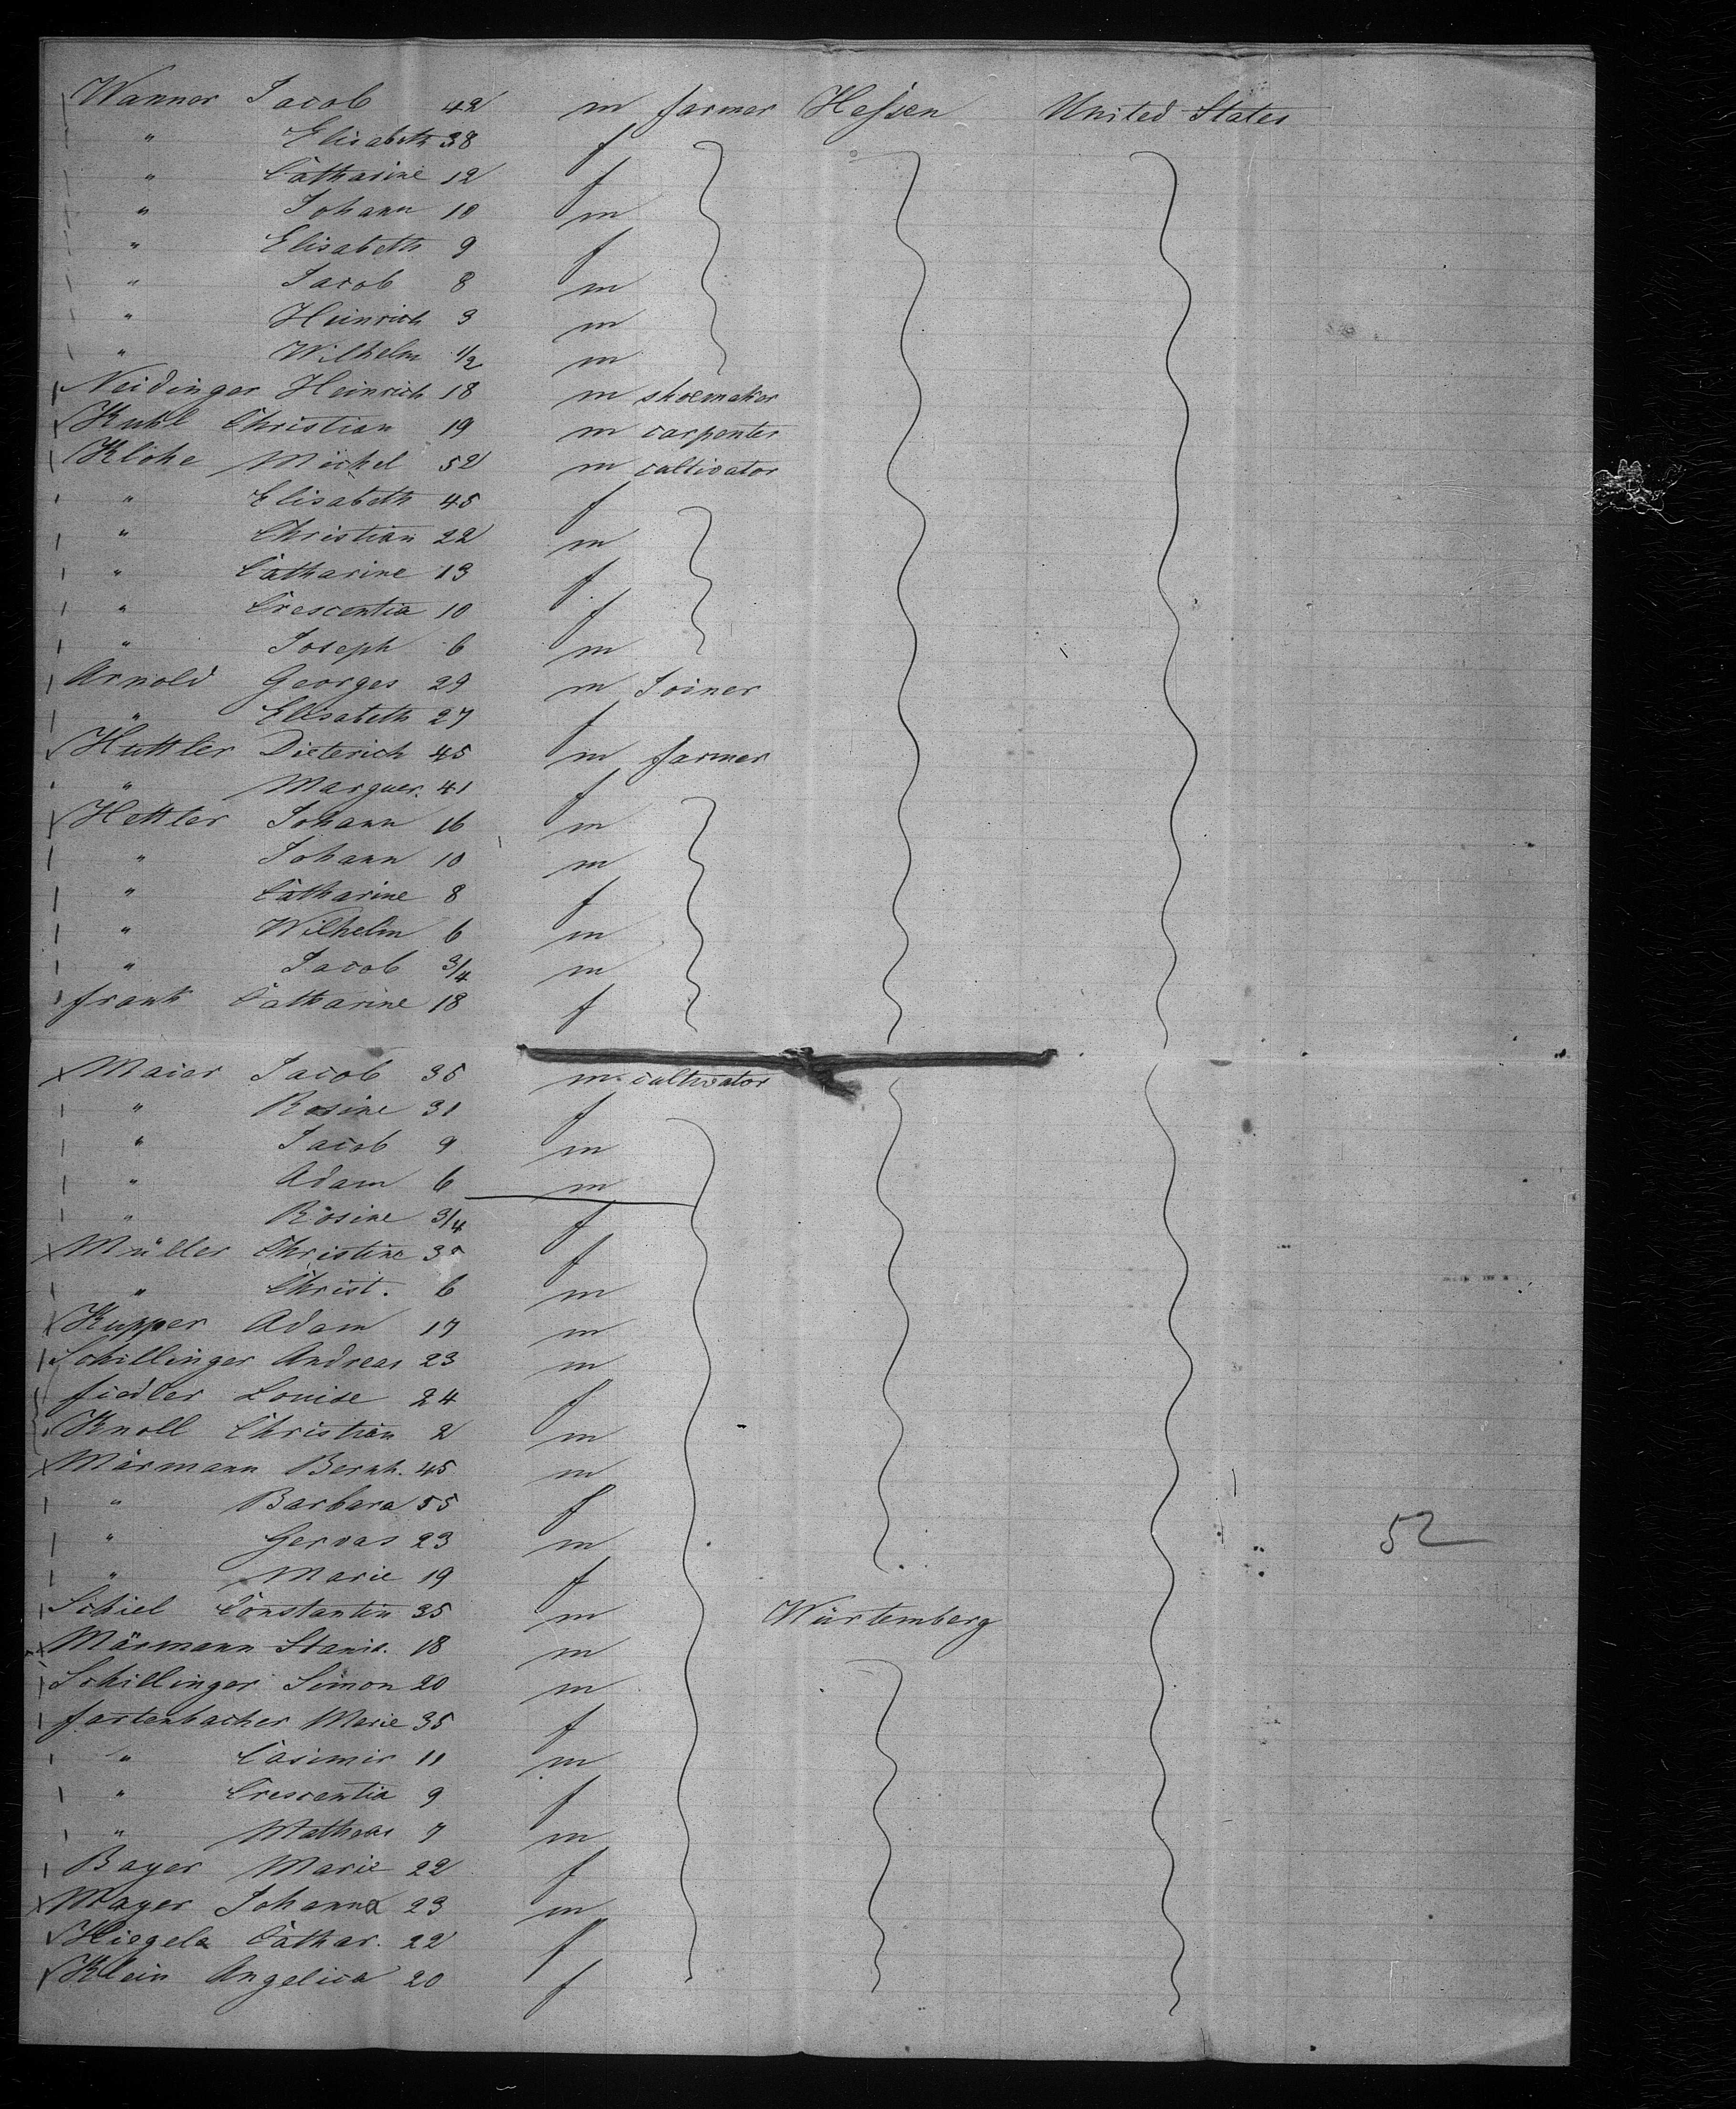 Wanner Jacob 42 m farmer Hessen United States
" Elisabeth 38 f
" Catharine 12 f
" Johann 10 m
" Elisabeth 9 f
" Jacob 8 m
" Heinrich 3 m
" Wilhelm 1/2 m
Neidinger Heinrich 18 m shoemaker
Kuhl Christian 19 m carpenter
Klohe Michel 52 m cultivator
" Elisabeth 45 f
" Christian 22 m
" Catharine 13 f
" Crescentia 10 f
" Joseph 6 m
Arnold Georges 29 m Joiner
" Elisabeth 27 f
Huttler Dieterich 45 m farmer
" Marguer. 41 f
Hettler Johann 16 m
" Johann 10 m
" Catharine 8 f
" Wilhelm 6 m
" Jacob 3/4 m
frank Catharine 18 f
Maier Jacob 35 m cultivator
" Rosine 31 f
" Jacob 9 m
" Adam 6 m
" Rosine 3/4 f
Müller Christine 35 f
" Christ. 6 m
Kupper Adam 17 m
Schillinger Andreas 23 m
fiedler Louise 24 f
Knoll Christian 2 m
Märmann Bernh. 45 m
" Barbara 55 f
" Gervas 23 m 52
" Marie 19 f
Schiel Constantin 35 m Würtemberg
Märmann Stanis. 18 m
Schillinger Simon 20 m
fartenbacher Marie 35 f
" Casimir 11 m
" Crescentia 9 f
" Matheas 7 m
Bayer Marie 22 f
Mayer Johanna 23 m
Hiegela Cathar. 22 f
Klein Angelica 20 f